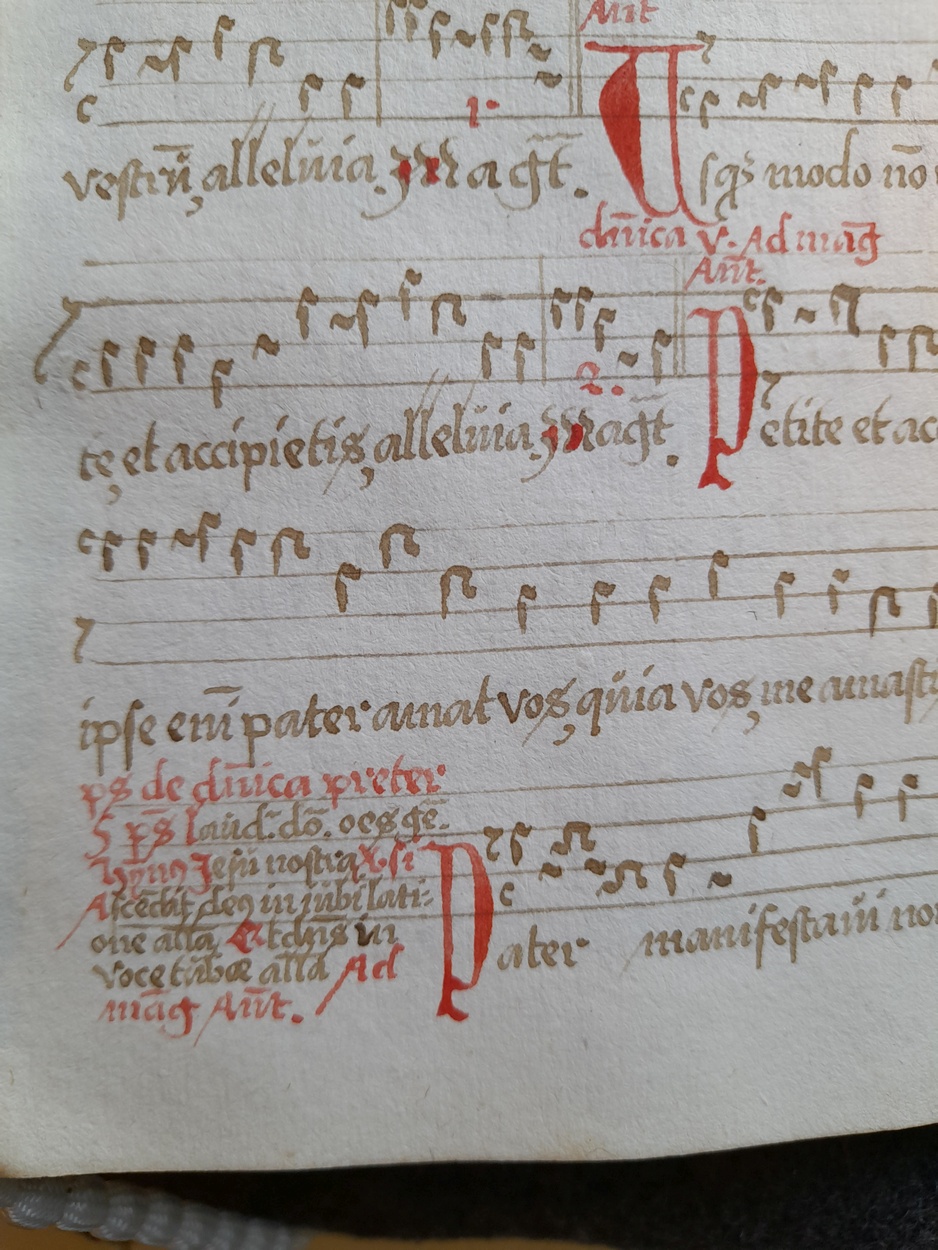 Ant
vestrũ, alleluia. Magt̃. Usq̃ modo nõ
1.
dñica v. Ad mag̃
Añt.
te, et accipietis, alleluia. Magt̃. Petite et acc
2.
ipse enĩ pater amat vos, quia vos, me amasti
ps de dñica preter
5 ps̃ laud. dõ. oes gẽ.
Hyñ9 Jesu nostra
Ascẽdit de9 in jubilati-
one alla, Et dñs in
voce tubæ alla Ad
mag̃ Añt. Pater manifestavi no